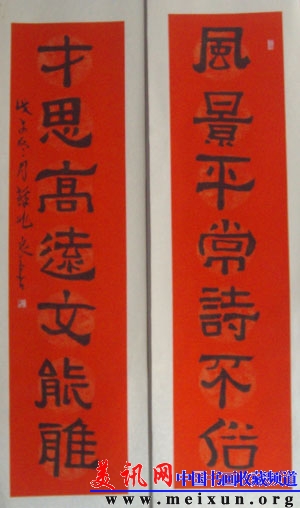 風景平常詩不俗
才思高遠文能雅
戊子冬月
美讯网
中国书画收藏频道
www.meixun.org